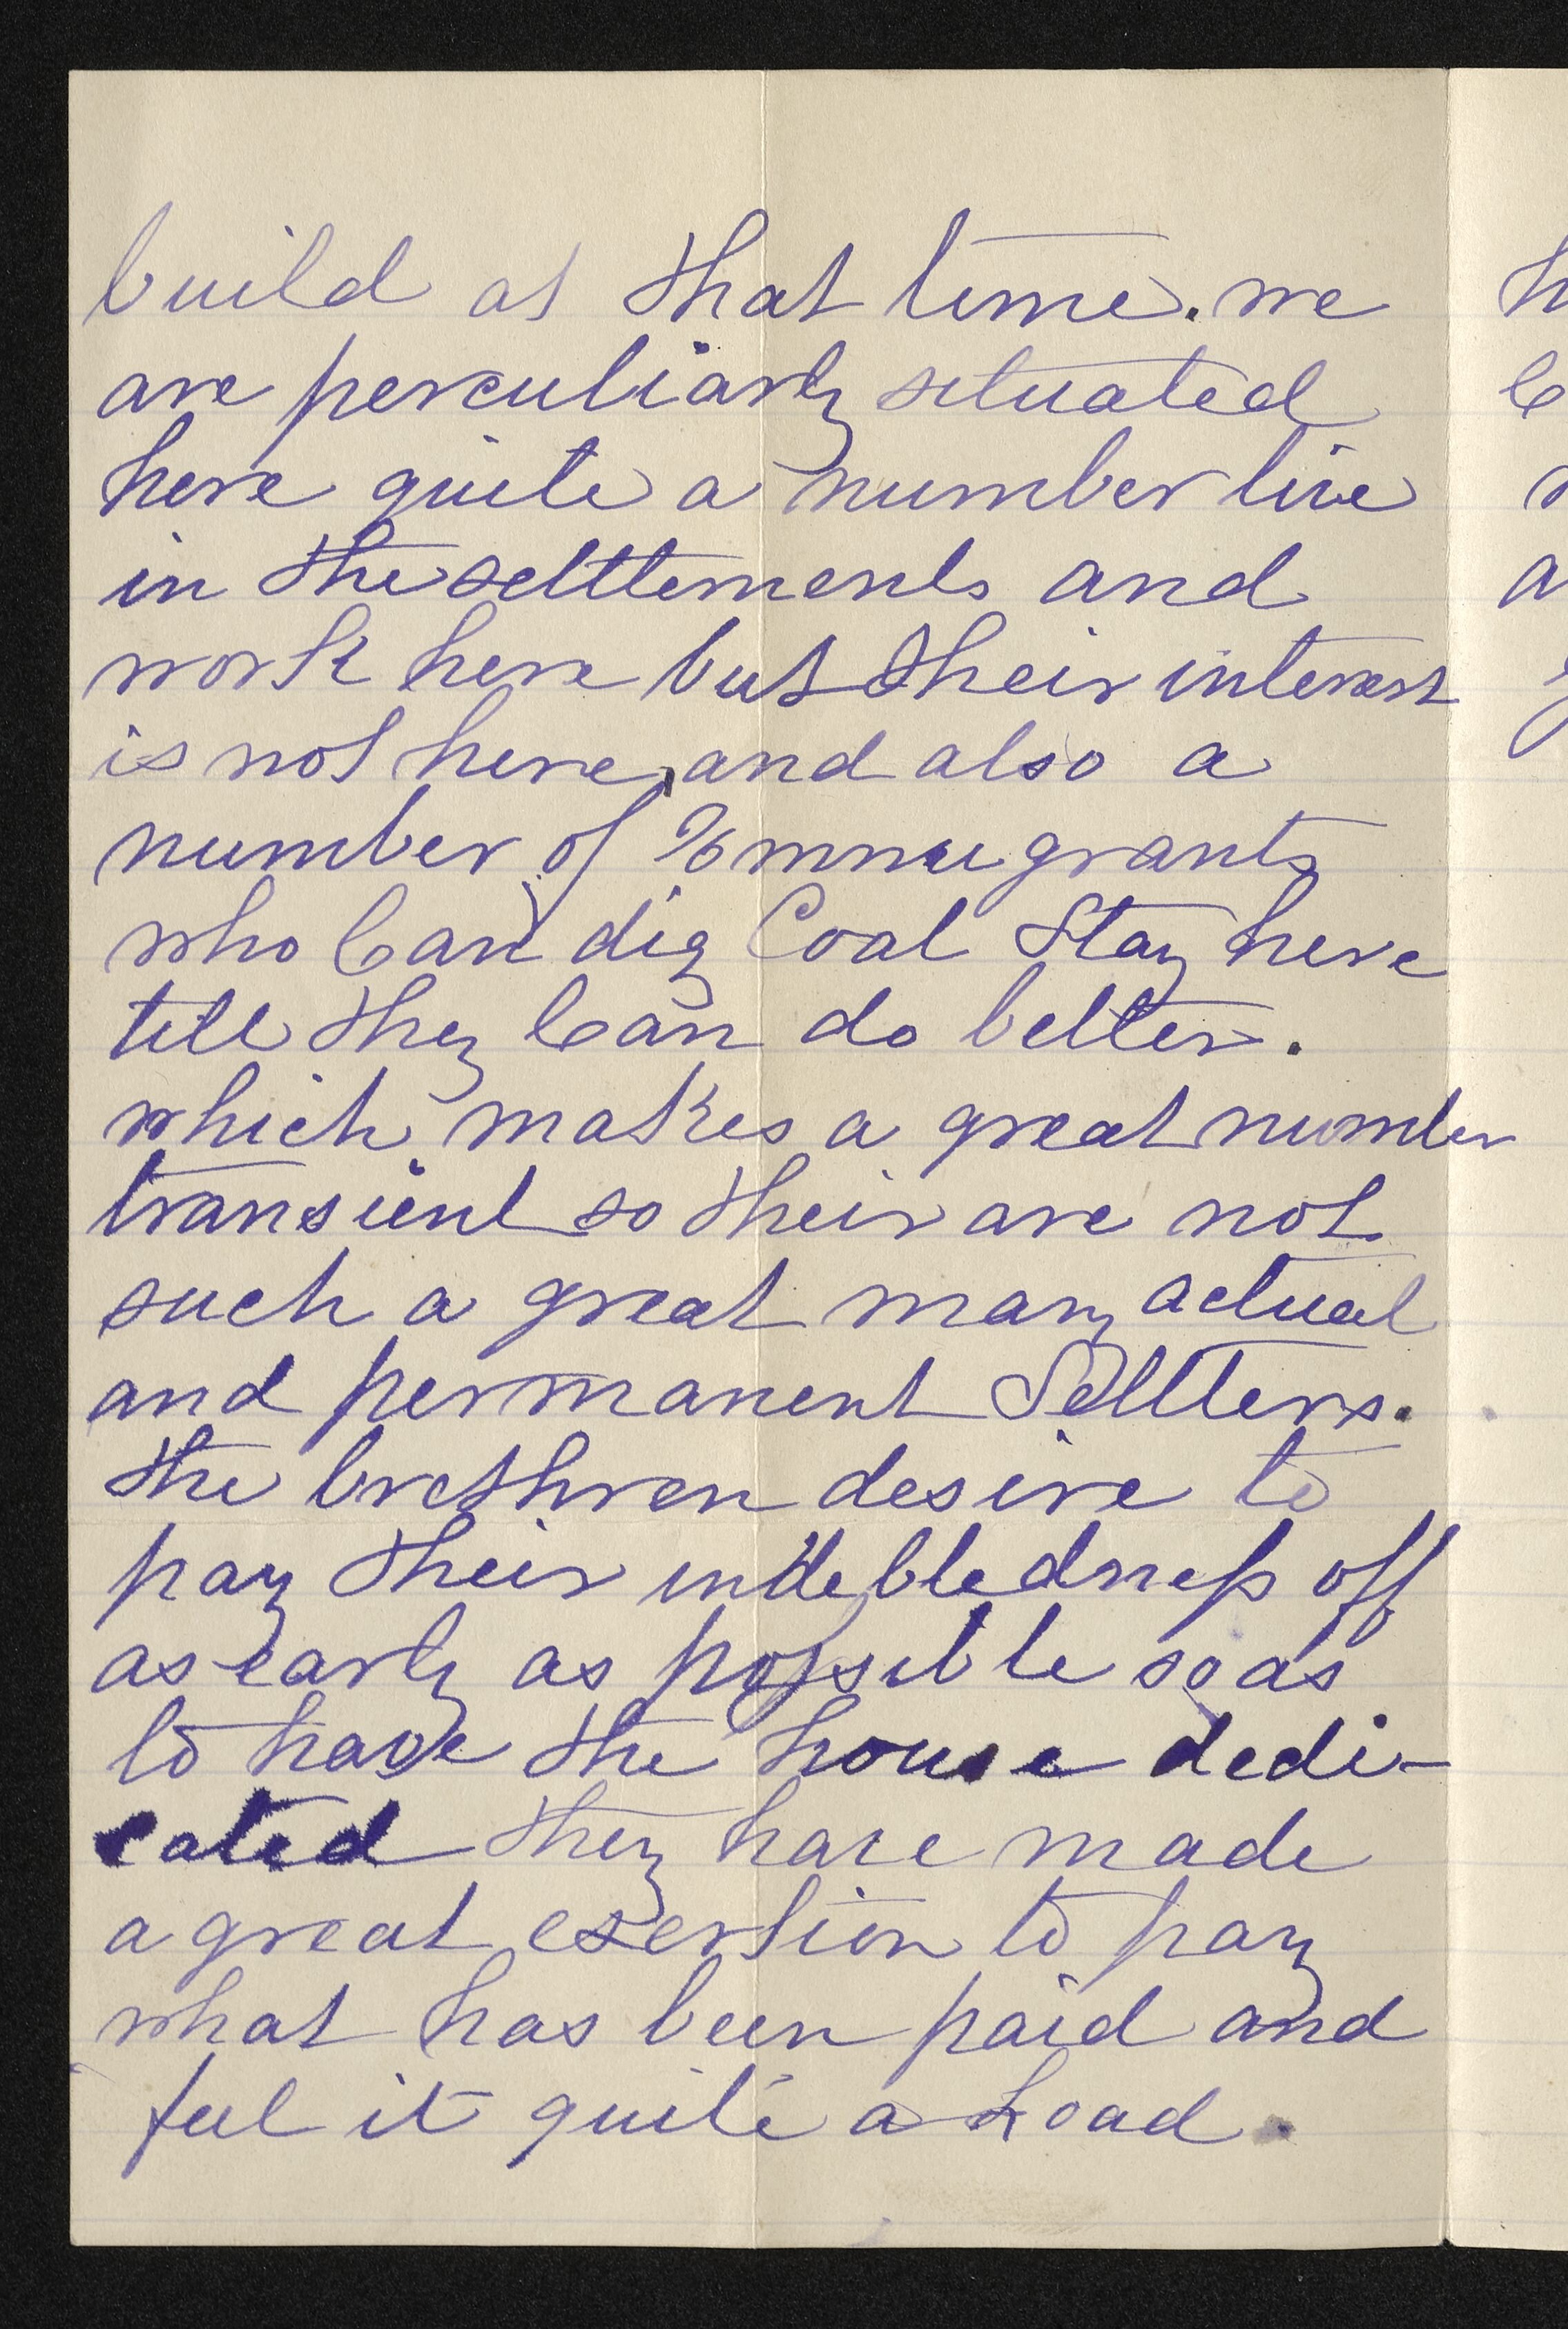 build at that time. we
are perculiarly situated
here quite a number live
in the settlements and
work here but their interest
is not here, and also a
number of Emmigrants
who Can dig Coal Stay here
till they Can do better.
which makes a great number
transient so their are not
such a great many actual
and permanent Settlers.
the brethren desire to
pay their indebtedness off
as early as possible so as
to have the house dedi-
cated they have made
a great exertion to pay
what has been paid and
feel it quite a Load.